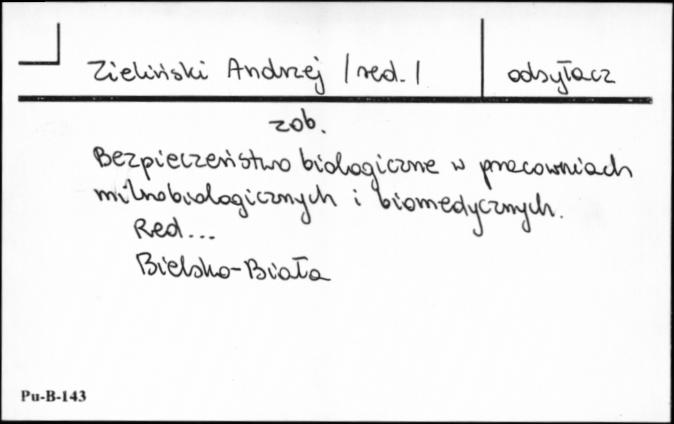 Zieliński Andrzej /red./ odsyłacz
zob.
Bezpieczeństwo biologiczne w pracowniach
mikrobiologicznych i biomedycznych.
Red...
Bielsko-Biała
Pu-B-143